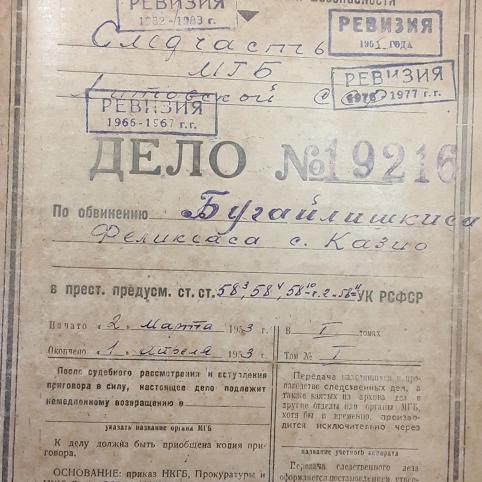 РЕВИЗИЯ
1982-1983 г.г.
безопасности
РЕВИЗИЯ
1951 ГОДА
Следчасть
МГБ
РЕВИЗИЯ
1976-1977 г.г.
Литовской
РЕВИЗИЯ
1966-1967 г.г.
ДЕЛО №19216
По обвинению Бугайлишкиса
Феликсаса с. Казио
в прест. предусм. ст. ст. 58³, 58⁴, УК РСФСР
Начато „2„ Марта 1953 г.
В I томах
Окончено „1„ Апреля 1953 г.
Том № I
После судебного рассмотрения и вступления
приговора в силу, настоящее дело подлежит
немедленному возвращению в
указать название органа МГБ
К делу должна быть приобщена копия при-
говора.
ОСНОВАНИЕ: приказ НКГБ, Прокуратуры и
Передача находящихся в про-
изводстве следственных дел, а
также взятых из архива дел в
другие отделы или органы МГБ,
хотя бы и временно, произво-
дится исключительно через
название учетного аппарата
Передача следственного дела
оформляется постановлением,